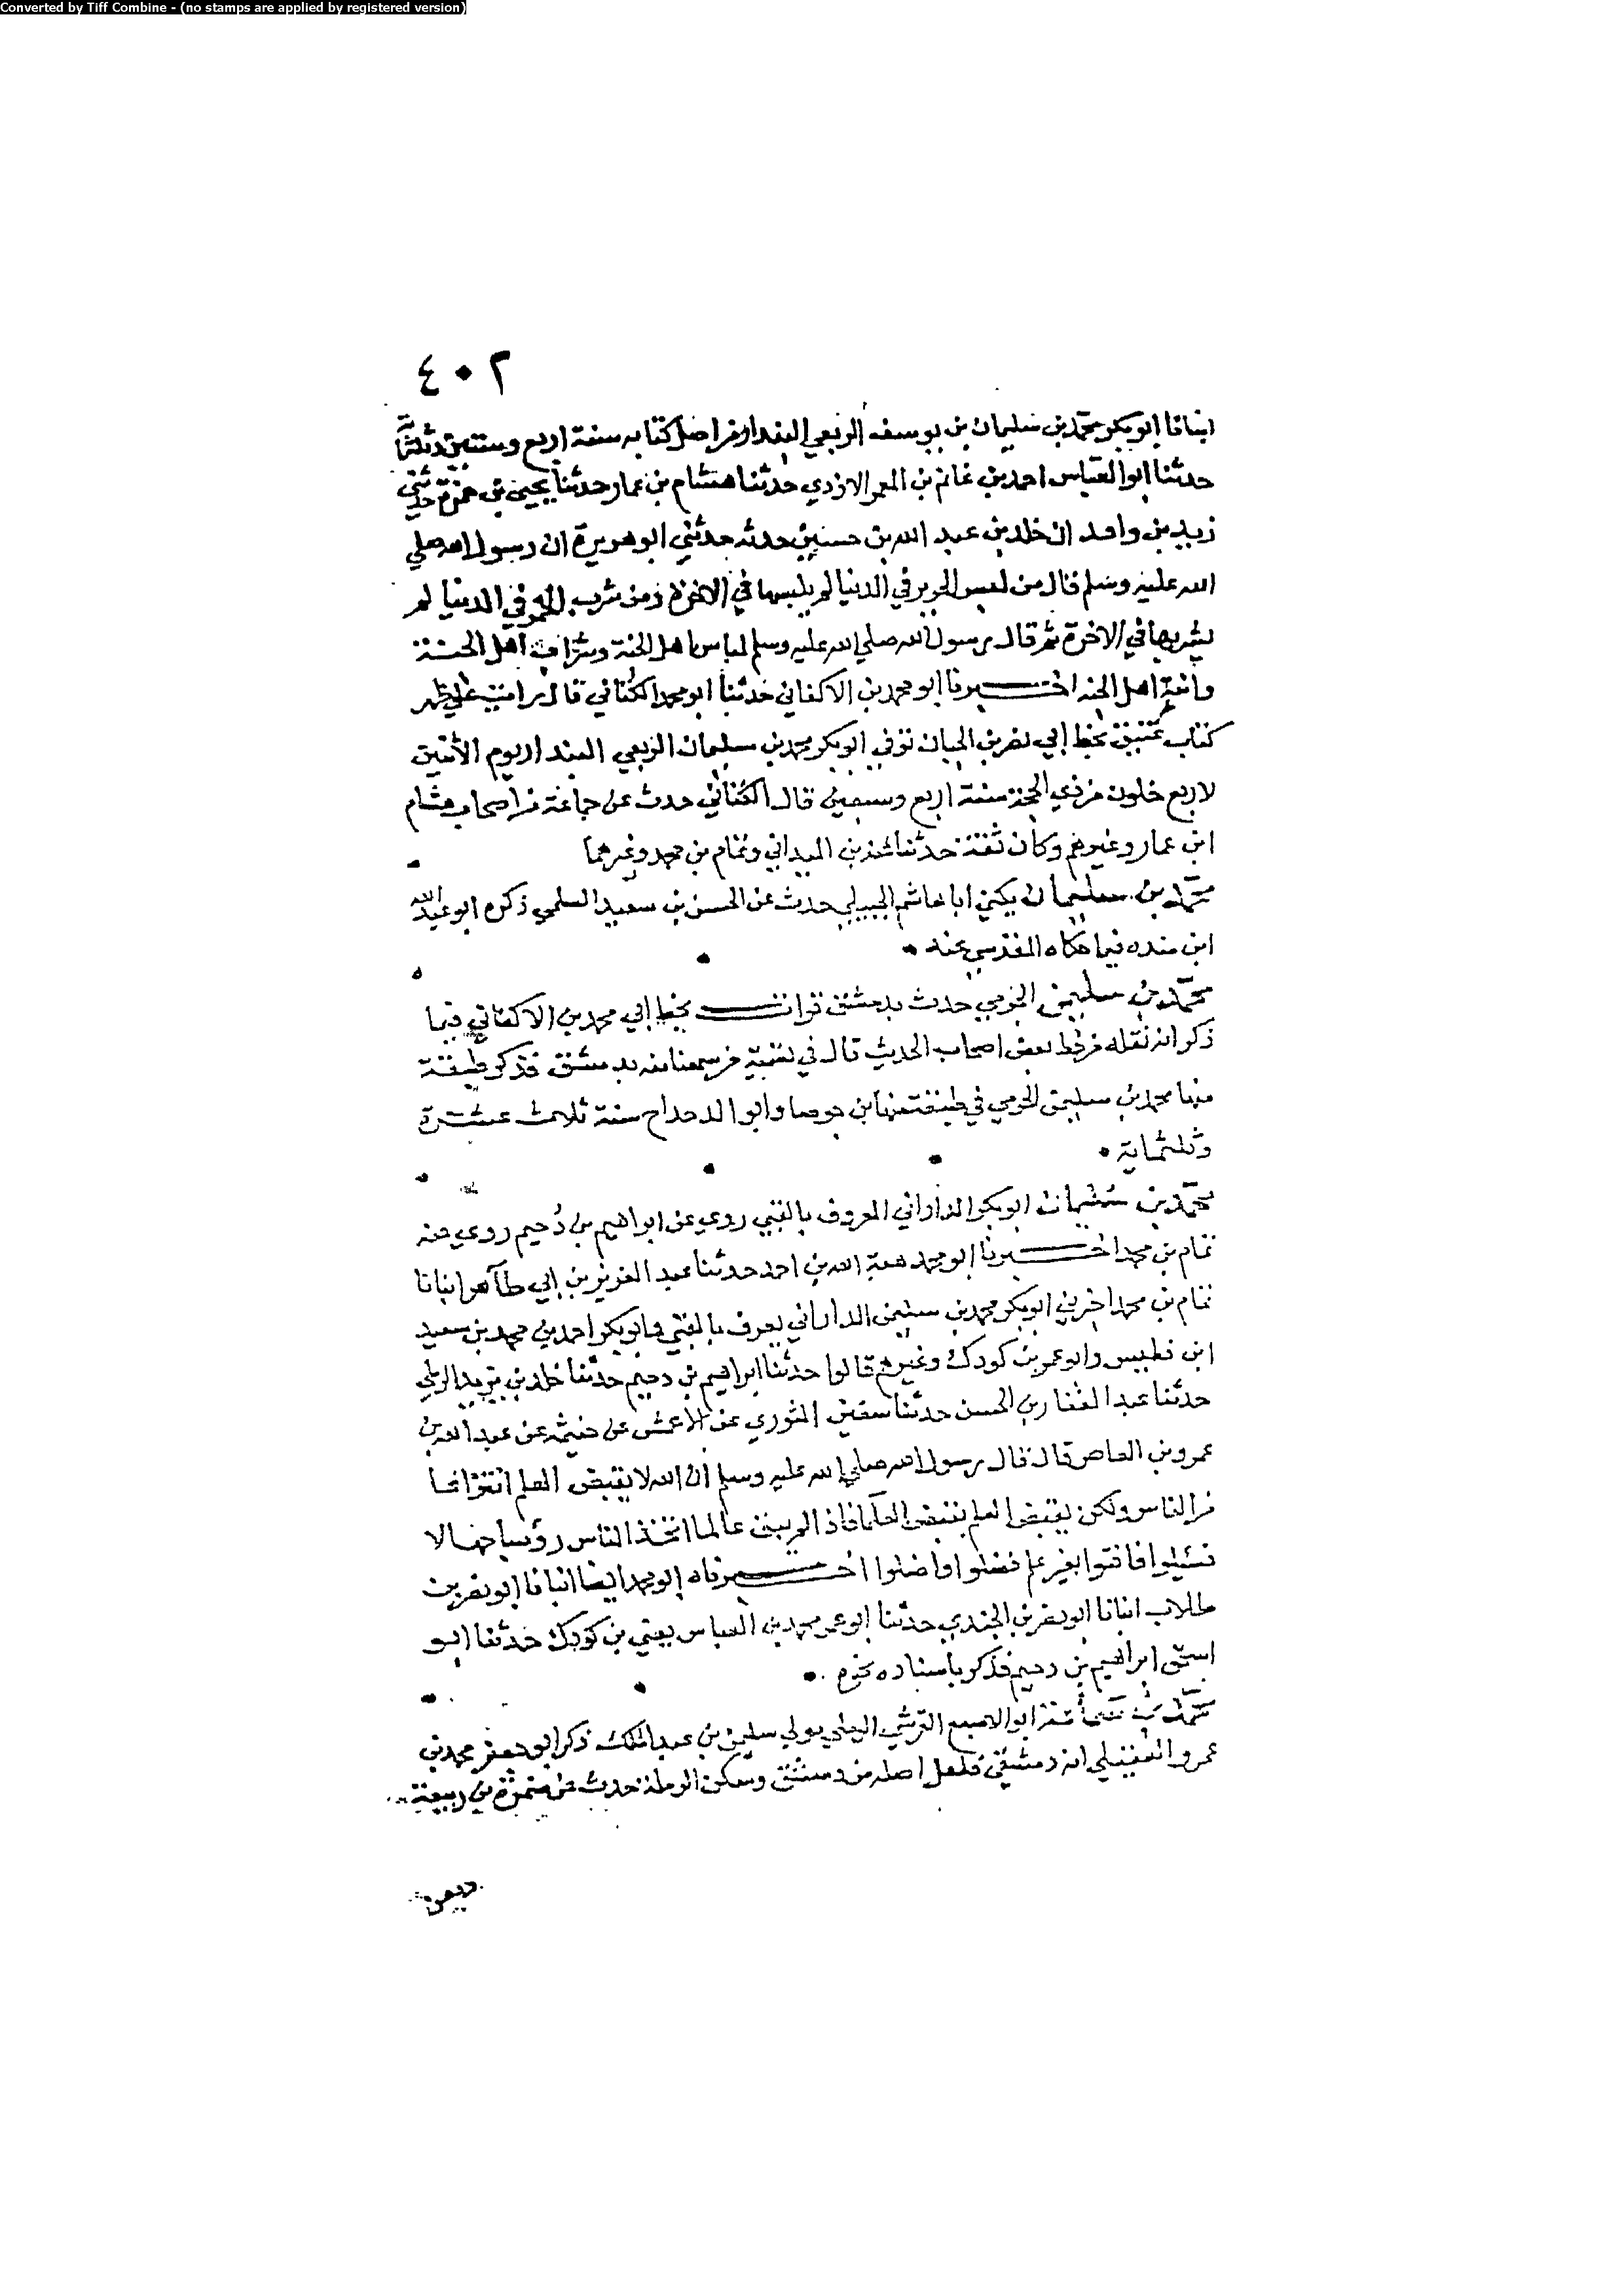 Converted by Tiff Combine - (no stamps are applied by registered version)
٤٠٢
ابنانا ابو بكر محمد بن سليمان بن يوسف الربعي البندار من اصل كتابه سنة اربع وستين وثلثمائة
حدثنا ابو العباس احمد بن غانم بن المعمر الازدي حدثنا هشام بن عمار حدثنا يحيى بن حمزة حدثني
زيد بن واقد ان خلد بن عبد الله بن حسين حدثه حدثني ابو هريرة ان رسول الله صلي
الله عليه وسلم قال من لبس الحرير في الدنيا لم يلبسها في الاخرة ومن شرب الخمر في الدنيا لم
يشربها في الاخرة ثم قال رسول الله صلي الله عليه وسلم لباس اهل الجنة وشراب اهل الجنة
وانية اهل الجنه اخبرنا ابو محمد بن الاكفاني حدثنا ابو محمد الكتاني قال رايت علي ظهر
كتاب عتيق بخط ابي نصر بن الجبان توفي ابو بكر محمد بن سليمان الربعي البندار يوم الاثنين
لاربع خلون من ذي الحجة سنة اربع وسبعين قال الكتاني حدث عن جماعة من اصحاب هشام
ابن عمار وغيرهم وكان ثقة حدثنا عنه بن الميداني وتمام بن محمد وغيرهما
محمد بن سليمان يكني ابا هاشم الجبيلي حدث عن الحسن بن سعيد السلمي ذكره ابو عبد الله
ابن منده فيما حكاه المقدسي عنه
محمد بن سليمن الجرمي حدث بدمشق قرات بخط ابي محمد بن الاكفاني فيما
ذكر انه نقله من خط بعض اصحاب الحديث قال في تسمية من سمعنا منه بدمشق فذكر طبقة
منها محمد بن سليمن الجرمي في طبقة منها بن جوصا وابو الدحداح سنة ثلاث عشرة
وثلثماية
محمد بن سليمان ابو بكر الداراني المعروف بالفتي روي عن ابراهيم بن دُحيم روي عنه
تمام بن محمد اخبرنا ابو محمد هبة الله بن احمد حدثنا عبد العزيز بن ابي طاهر انبانا
تمام بن محمد اخبرني ابو بكر محمد بن سليمن الداراني يعرف بالفتي وابو بكر احمد بن محمد بن سعيد
ابن فطيس وابو عمر بن كودك وغيرهم قالوا حدثنا ابراهيم بن دحيم حدثنا خلد بن يزيد الرملي
حدثنا عبد الغفار بن الحسن حدثنا سفين الثوري عن الاعمش عن خيثمة عن عبد الله بن
عمرو بن العاص قال قال رسول الله صلي الله عليه وسلم ان الله لا يقبض العلم انتزاعا
من الناس ولكن يقبض العلم بقبض العلما فاذا لم يبق عالما اتخذ الناس رؤسا جهالا
فسئيلوا فافتوا بغير علم فضلوا واضلوا اخبرناه ابو محمد ايضا انبانا ابو نصر بن
طلاب انبانا ابو نصر بن الجندي حدثنا ابو عمر محمد بن العباس يعني بن كودك حدثنا ابو
اسحق ابراهيم بن دحيم فذكر باسناده نحوه
محمد بن سماعة ابو الاصبع القرشي الرملي مولي سليمن بن عبد الملك ذكر ابو جعفر محمد بن
عمرو العقيلي انه دمشقي فلعل اصله من دمشق وسكن الرملة حدث عن ضمرة بن ربيعة